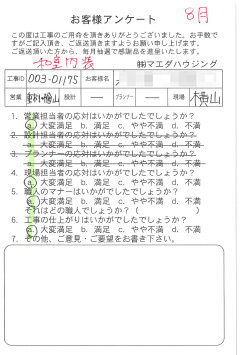 お客様アンケート
8月
この度は工事のご用命を頂きありがとうございました。お手数で
すがご記入頂き、ご返送頂きますようお願い申し上げます。
ご返送頂いた方から、毎月抽選で感謝品を進呈いたします。
和室改装
㈱マエダハウジング
工事ID 003-01175 お客様名
営業 設計 ― プランナー ― 現場 横山
1. 営業担当者の応対はいかがでしたでしょうか?
a. 大変満足 b. 満足 c. やや不満 d. 不満
2. 設計担当者の応対はいかがでしたでしょうか?
a. 大変満足 b. 満足 c. やや不満 d. 不満
3. プランナーの応対はいかがでしたでしょうか?
a. 大変満足 b. 満足 c. やや不満 d. 不満
4. 現場担当者の応対はいかがでしたでしょうか?
a. 大変満足 b. 満足 c. やや不満 d. 不満
5. 職人のマナーはいかがでしたでしょうか?
a. 大変満足 b. 満足 c. やや不満 d. 不満
それはどの職人でしょうか?( )
6. 工事の仕上がりはいかがでしたでしょうか?
a. 大変満足 b. 満足 c. やや不満 d. 不満
7. その他、ご意見・ご要望をお書き下さい。